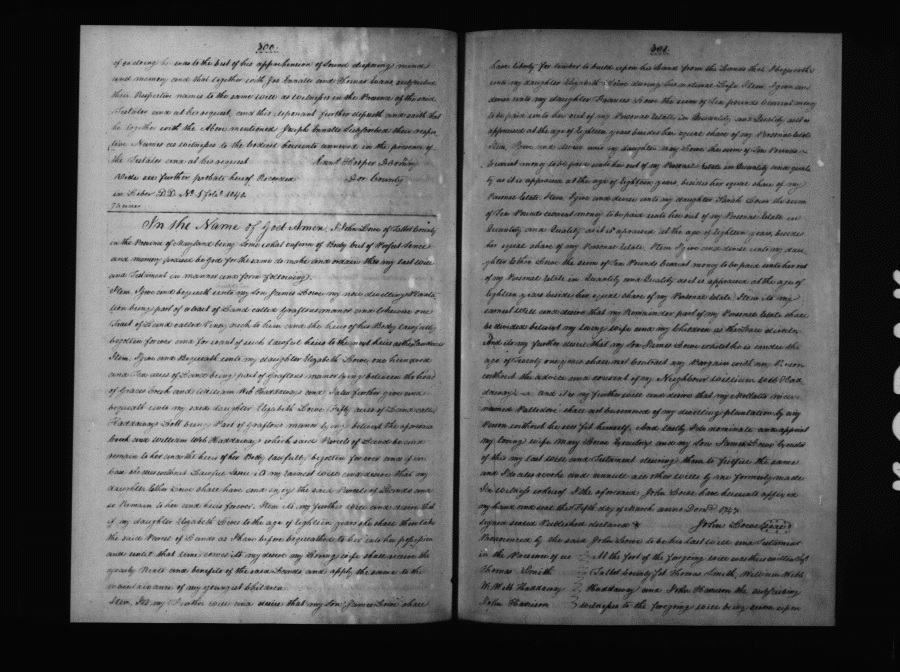 300.
of so doing he was to the best of his apprehension of sound disposing mind
and memory and that together with Jos. Ennalls and Thomas subscribed
their Respective names to the same will as witnesses in the Presence of the said
Testator and at his request, and this deponent further deposeth and saith that
he together with the Above mentioned Joseph Ennalls subscribed their respec
tive Names as witnesses to the codicil hereunto annexed in the presence of
the Testator and at his request
Dor County
Vide see further probate hereof Recorded
in Liber D.D. No. 5 folo.
In the Name of God Amen, I John Lowe of Talbot County
in the Province of Maryland being some what infirm of Body but of Perfect Sence
and memory praised be God for the same do make and ordain this my last will
and Testament in manner and form following.
Item, I give and bequeath unto my Son James Lowe my now dwelling Planta
tion being part of a tract of Land called Graftons manor and likewise one
Tract of Land called to him and the heirs of his Body lawfully
begotten forever and for want of such lawful heirs to the next heirs
Item, I give and Bequeath unto my daughter Elizabeth Lowe one hundred
and Ten acres of Land being part of Graftons manor lying between the head
of Creek and William Web Haddaway and I also further give and
bequeath unto my said daughter Elizabeth Lowe Fifty acres of Land called
Haddaways Lott being Part of Graftons manor lying between the aforesaid
Creek and William Web Haddaways which said Parcels of Land be and
remain to her and the heirs of her Body lawfully begotten forever and if in
case she dies without Lawful Issue its my Earnest will and desire that my
daughter Esther Lowe shall have and enjoy the said Parcels of Lands and
to Remain to her and heirs forever. Item its my further will and desire that
if my daughter Elizabeth Live to the age of Eighteen years she shall then take
the said Parcel of Lands as I have before bequeathed to her into her possession
and until that time comes its my desire my loving wife shall receive the
yearly Rents and benefits of the said Lands, and apply the same to the
maintainance of my youngest Children.
Item, Its my Further will and desire that my Son James Lowe shall
301.
have liberty for timber to build upon his Land from the Lands that I bequeath
unto my daughter Elizabeth Lowe during his natural Life. Item I give and
devise unto my daughter Frances Lowe the sum of Ten pounds Currant money
to be paid unto her out of my Personal Estate in Quantity and Quality as it is
appraised at the age of Eighteen years besides her equal share of my Personal Estate
Item, I give and devise unto my daughter Mary Lowe the sum of Ten Pounds
Currant money to be paid unto her out of my Personal Estate in Quantity and quali
ty as it is appraised at the age of Eighteen years besides her equal share of my
Personal Estate. Item I give and devise unto my daughter Sarah Lowe the sum
of Ten Pounds currant money to be paid unto her out of my Personal Estate in
Quantity and Quality as it is appraised at the age of Eighteen years, besides
her equal share of my Personal Estate, Item I give and devise unto my daug
hter Esther Lowe the sum of Ten Pounds Currant money to be paid unto her out
of my Personal Estate in Quantity and Quality as it is appraised at the age of
Eighteen years besides her equal share of my Personal Estate, Item its my
earnest will and desire that my Remainder part of my Personal Estate shall
be divided between my loving wife and my Children as the Law directs.
And its my further desire that my Son James Lowe whilst he is under the
age of twenty one years shall not Contract any Bargain with any Person
without the advice and consent of my Neighbour William Web Had
daway and its my further will and desire that my Molatto
named shall not be removed of my dwelling plantation by any
Person without he see fit himself. And lastly I do nominate and appoint
my loving wife Mary Lowe Executrix and my Son James Lowe Executor
of this my last will and Testament desiring them to fulfill the same
and I do also revoke and annull all other wills by me formerly made
In witness whereof I the aforesaid John Lowe have hereunto affixed
my hand and seal this Fifth day of March anno Domi. 1747.
signed sealed Published declared &
John Lowe (seal)
Pronounced by the said John Lowe to be his last will and Testament
in the Presence of us
Thomas Smith
W. Web Haddaway
John Harrison
At the foot of the foregoing will was thus written
Talbot County Sct. Thomas Smith, William Webb
Haddaway and John Harrison the subscribing
witnesses to the foregoing will being sworn upon